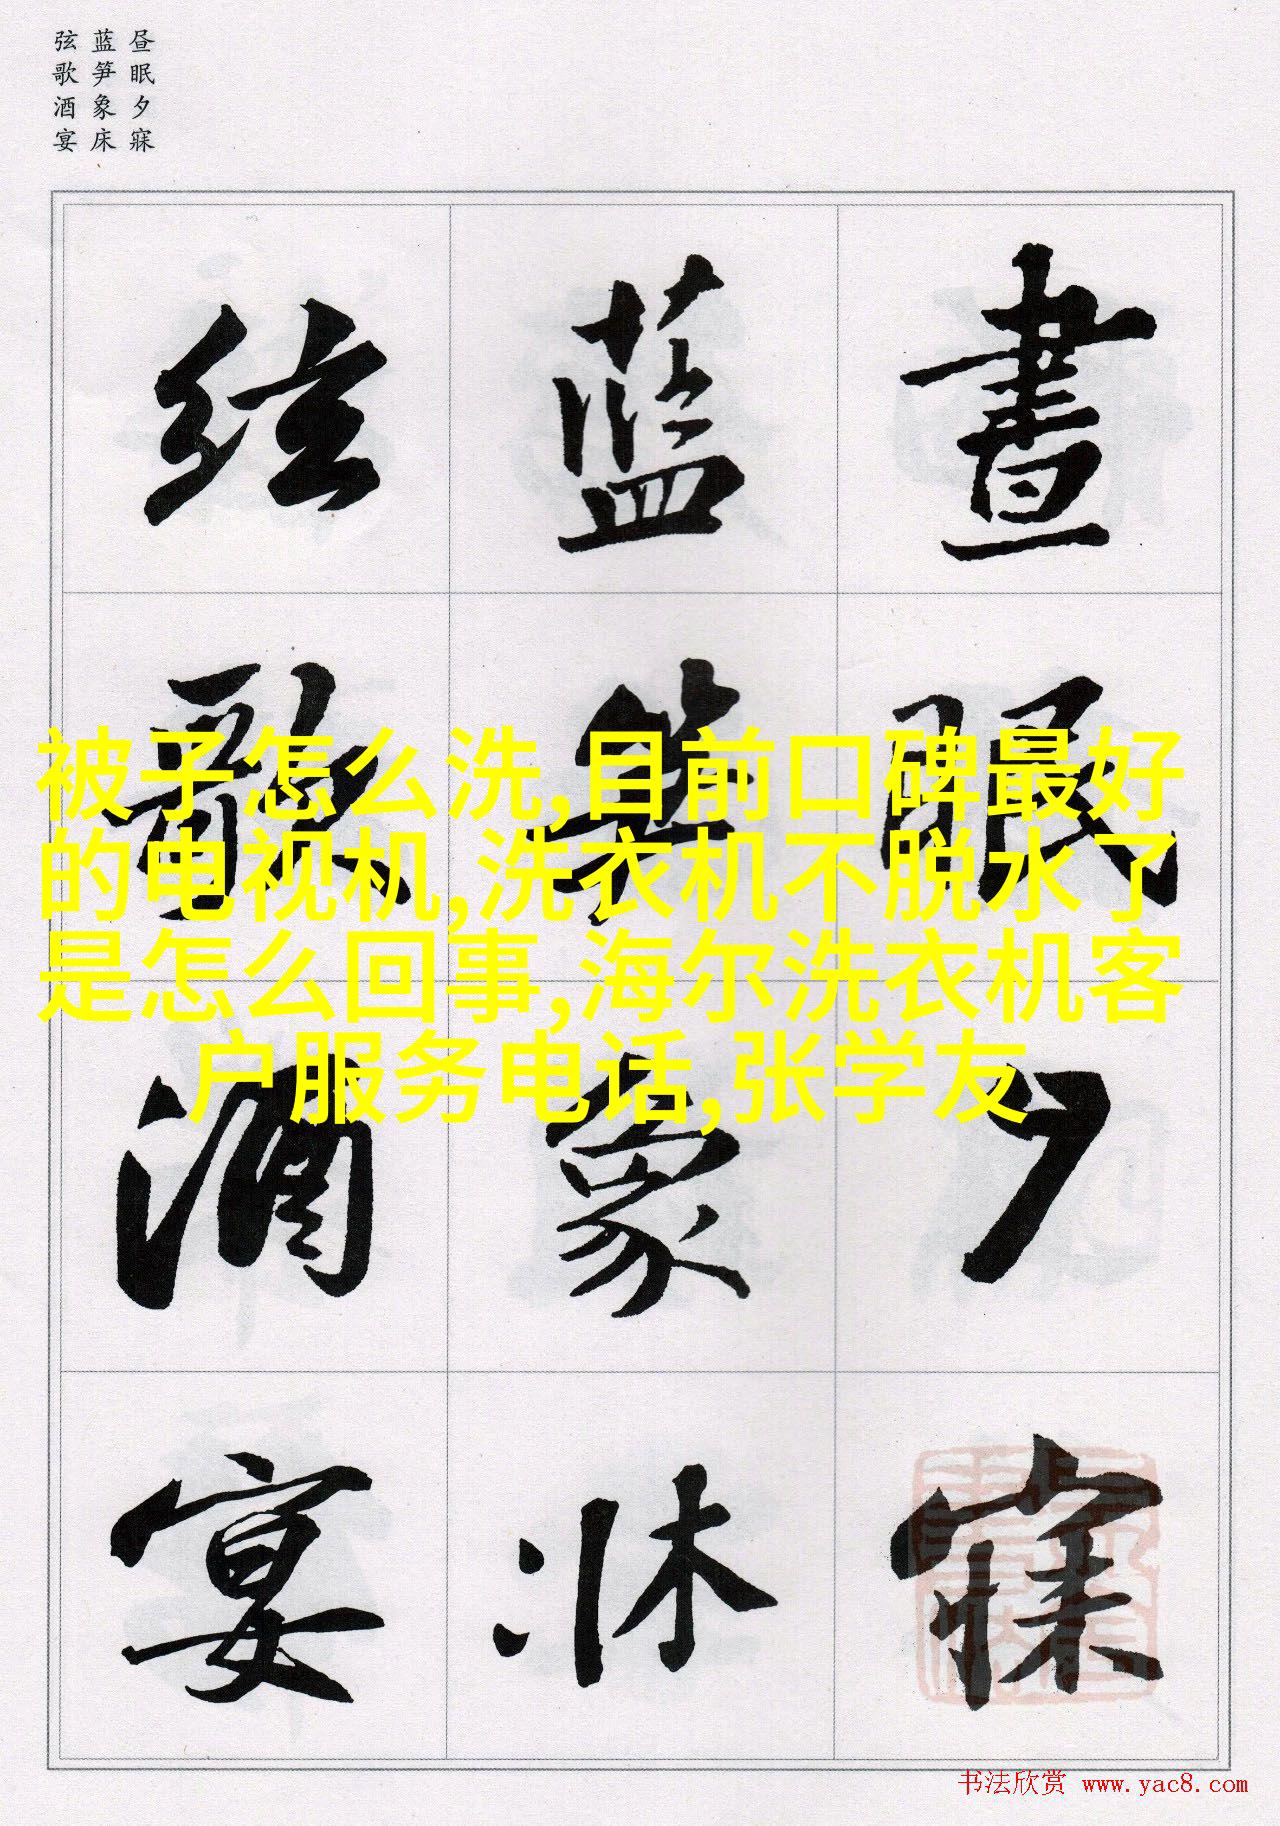 昼眠夕寐
蓝笋象床
弦歌酒宴
晝眠夕寐
藍笋象牀
絃歌酒宴
被子怎么洗,目前口碑最好
的电视机,洗衣机不脱水了
是怎么回事,海尔洗衣机客
户服务电话,张学友
书法欣赏 www.yac8.com